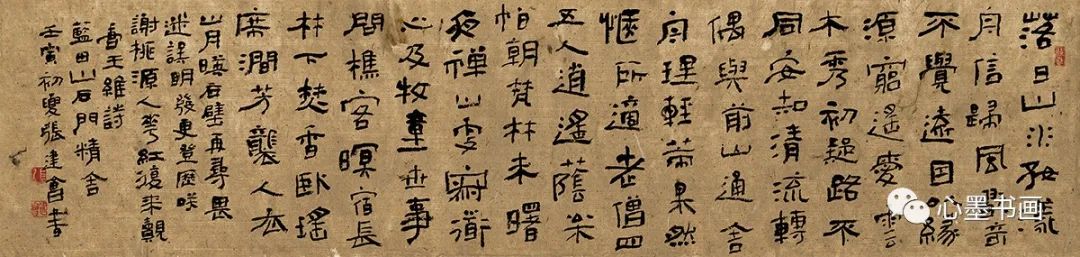 落日山水好漾
舟信歸風探奇
不覺遠因以緣
源窮遙愛雲
木秀初疑路不
同安知清流轉
偶與前山通舍
舟理輕策果然
愜所適老僧四
五人逍遙蔭松
柏朝梵林未曙
夜禪山更寂道
心及牧童世事
問樵客暝宿長
林下焚香臥瑤
席澗芳襲人衣
山月暎石壁再尋畏
迷誤明發更登歷咲
謝桃源人花紅復來覿
王維詩
藍田山石門精舍
壬寅初夏張建會書
心墨书画